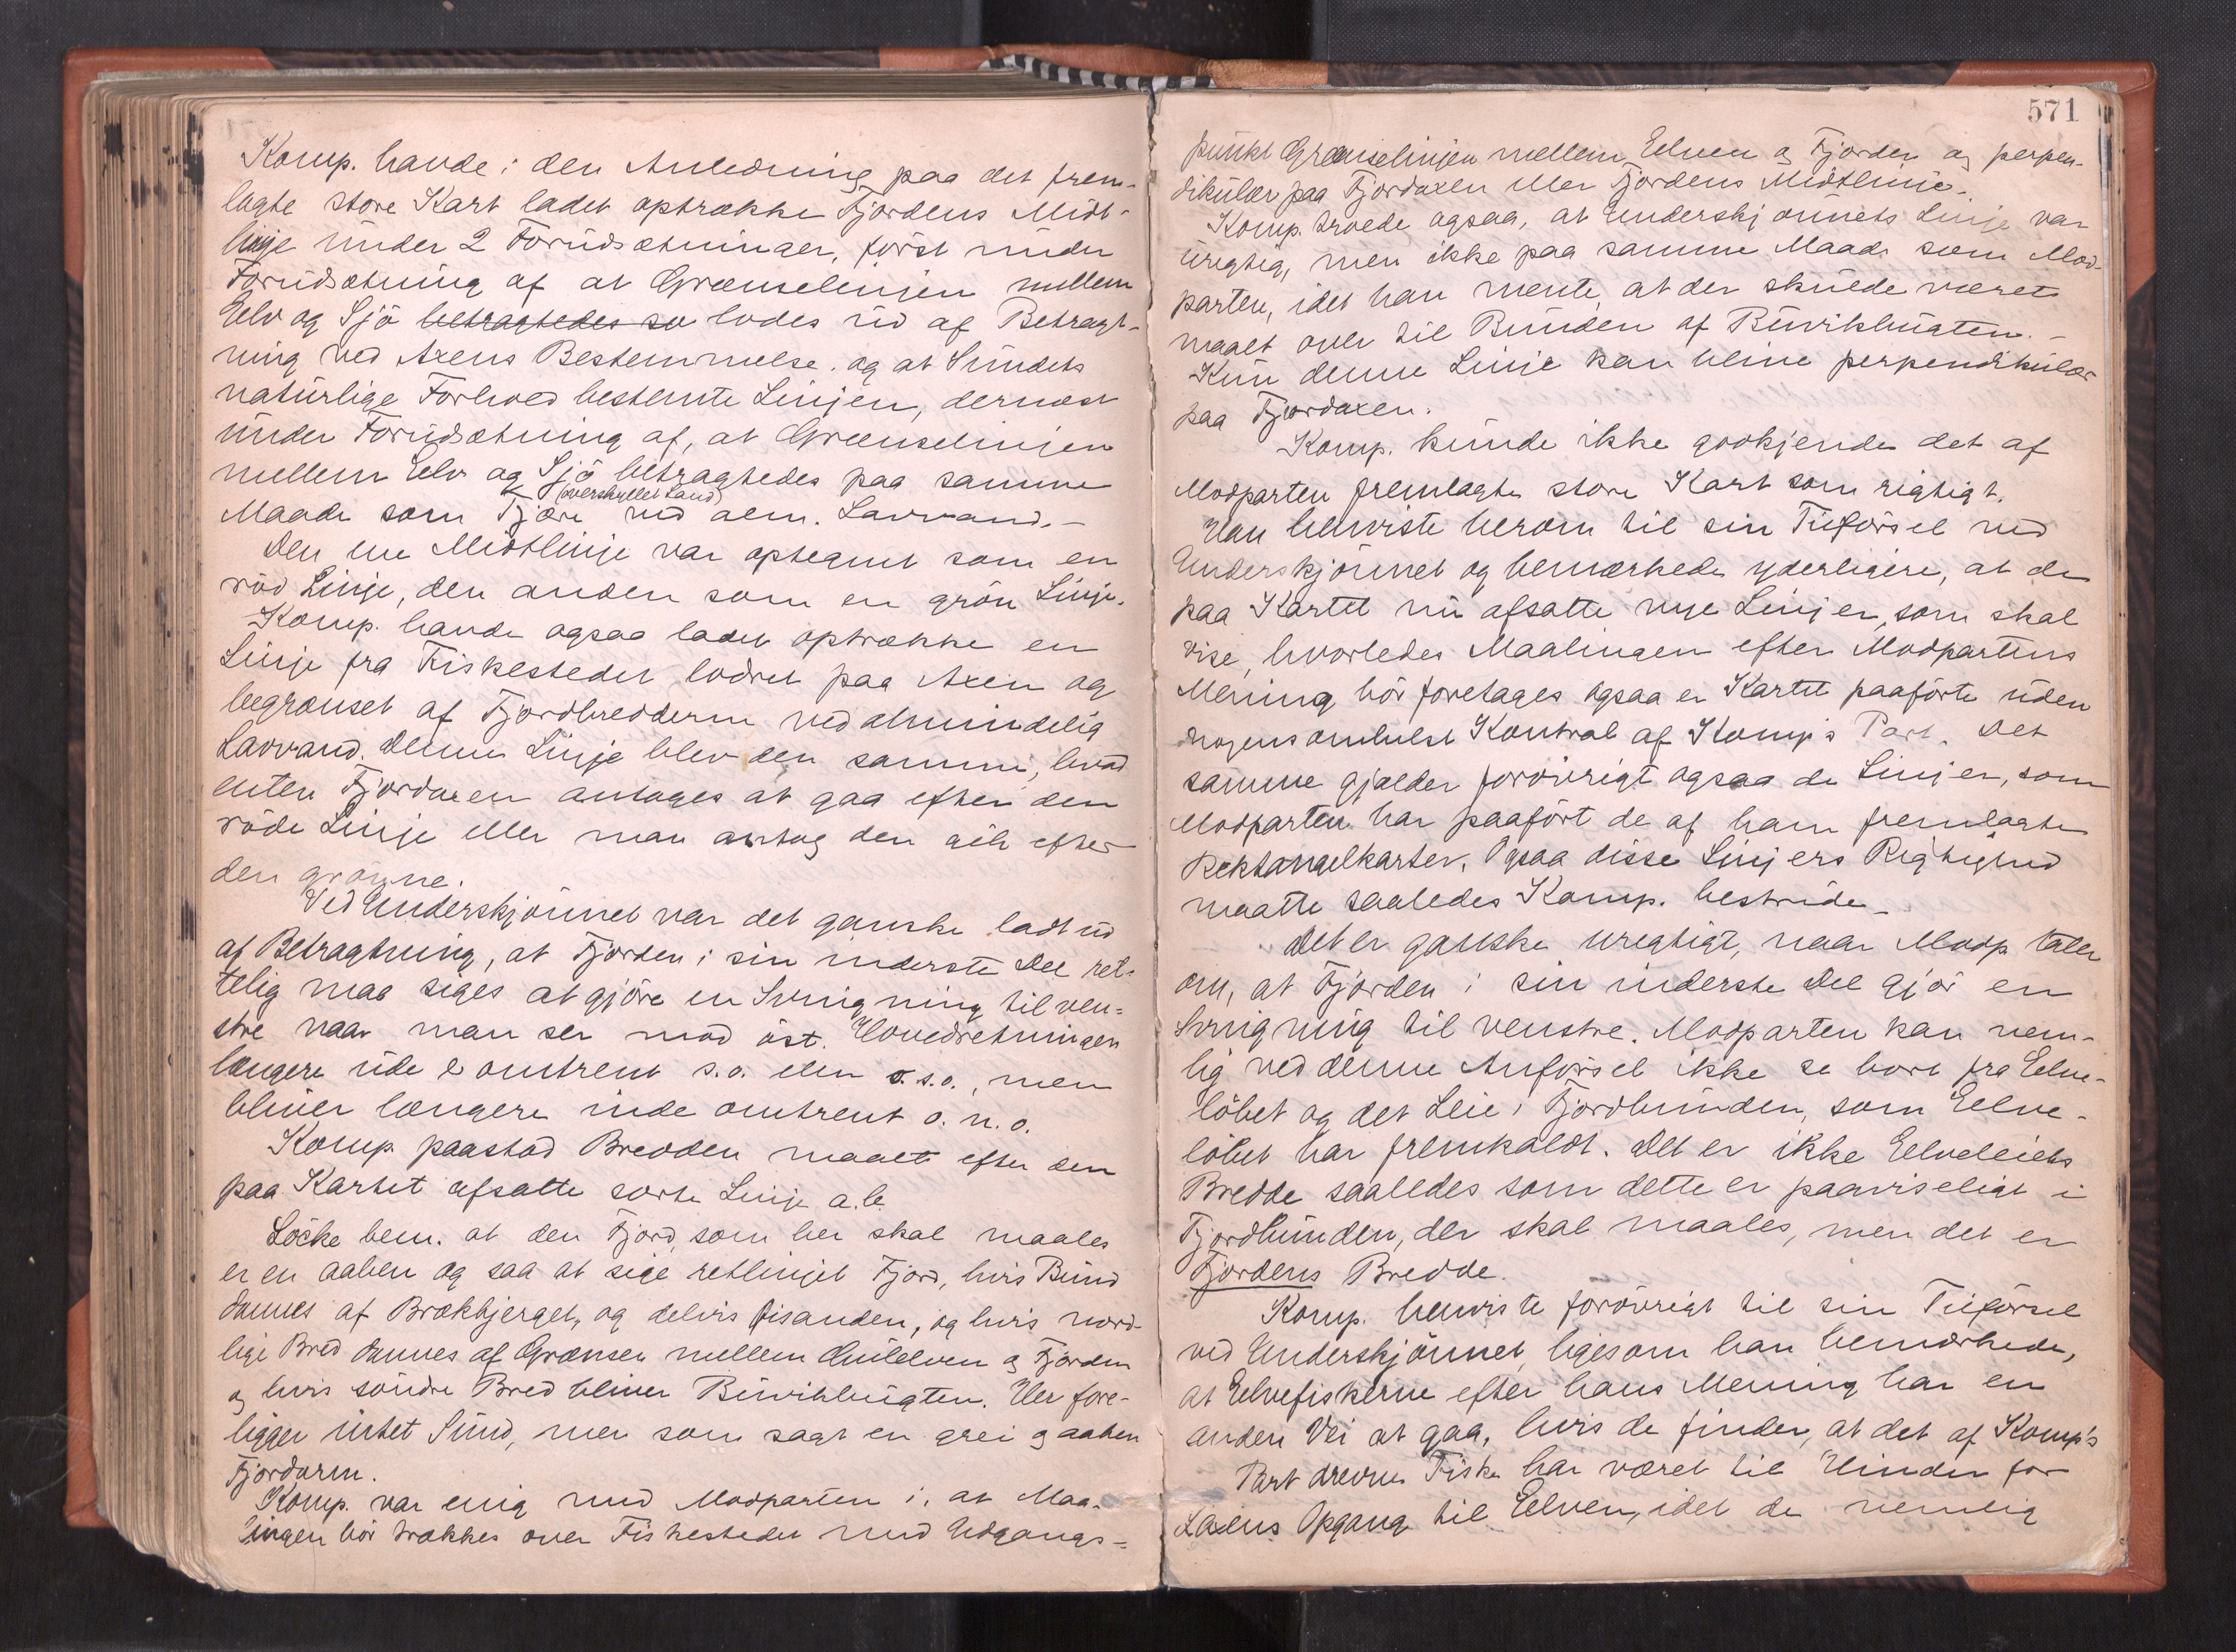 Komp. havde i den Anledning paa det frem-
lagte store Kart ladet optrække Fjordens Midt-
linje under 2 Forudsætninger, først under
Forudsætning af at Grænselinjen mellem
Elv og Sjø betragtedes so lodes ud af Betragt-
ning ved Axens Bestemmelse og at Sundets
naturlige Forhold bestemte Linjen, dernæst
under Forudsætning af, at Grænselinjen
mellem Elv og Sjø betragtedes paa samme
(overskyllet Land)
Maade som Fjære ved alm. Lavvand.-
Den ene Midtlinje var optegnet som en
rød Linje, den anden som en grøn Linje.
Komp. havde ogsaa ladet optrække en
Linje fra Fiskestedet lodret paa Axen og
begrænset af Fjordbredderne ved almindelig
Lavvand. Denne Linje blev den samme, hvad
enten Fjordaxen antages at gaa efter den
røde Linje eller man antog den gik efter
den grønne.
Ved Underskjønnet var det ganske ladt ud
af Betragtning, at Fjorden i sin inderste Del ret-
telig maa siges at gjøre en Svingning til ven-
stre naar man ser mod øst. Hovedretningen
længere ude er omtrent s.o. eller o.s.o., men
bliver længere inde omtrent o.n.o.
Komp. paastod Bredden maalt efter den
paa Kartet afsatte sorte Linje a.b.
Löcke bem. at den Fjord, som her skal maales
er en aaben og saa at sige retlinjet Fjord, hvis Bund
dannes af Brækbjerget, og delvis Øisanden, og hvis nord-
lige Bred dannes af Grænsen mellem Guldelven og Fjorden
og hvis søndre Bred bliver Buvikbugten. Her fore-
ligger intet Sund, men som sagt en grei og aaben
Fjordarm.
Komp. var enig med Modparten i, at Maa-
lingen bør trækkes over Fiskestedet med Udgangs-
571
punkt Grænselinjen mellem Elven og Fjorden og perpen-
dikulær paa Fjordaxen eller Fjordens Midtlinje.
Komp. troede ogsaa, at Underskjønnets Linje var
urigtig, men ikke paa samme Maade som Mod-
parten, idet han mente, at der skulde været
maalt over til Bunden af Buvikbugten.-
Kun denne Linje kan blive perpendikulær
paa Fjordaxen.
Komp. kunde ikke godkjende det af
Modparten fremlagte store Kart som rigtigt.
Han henviste herom til sin Tilførsel ved
Underskjønnet og bemærkede yderligere, at de
paa Kartet nu afsatte nye Linjer, som skal
vise, hvorledes Maalingen efter Modpartens
Mening bør foretages ogsaa er Kartet paaførte uden
nogensomhelst Kontrol af Komp's Part. Det
samme gjælder forøvrigt ogsaa de Linjer, som
Modparten har paaført de af ham fremlagte
Rektangelkarter. Ogsaa disse Linjers Rigtighed
maatte saaledes Komp. bestride.
Det er ganske urigtigt, naar Modp. taler
om, at Fjorden i sin inderste Del gjør en
Svingning til venstre. Modparten kan nem-
lig ved denne Anførsel ikke se bort fra Elve-
løbet og det Leie i Fjordbunden, som Elve-
løbet har fremkaldt. Det er ikke Elveleiets
Bredde saaledes som dette er paaviseligt i
Fjordbunden, der skal maales, men det er
Fjordens Bredde.
Komp. henviste forøvrigt til sin Tilførsel
ved Underskjønnet, ligesom han bemærkede,
at Elvefiskerne efter hans Mening har en
anden Vei at gaa, hvis de finder, at det af Komp's
Part drevne Fiske har været til Hinder for
Laxens Opgang til Elven, idet de nemlig